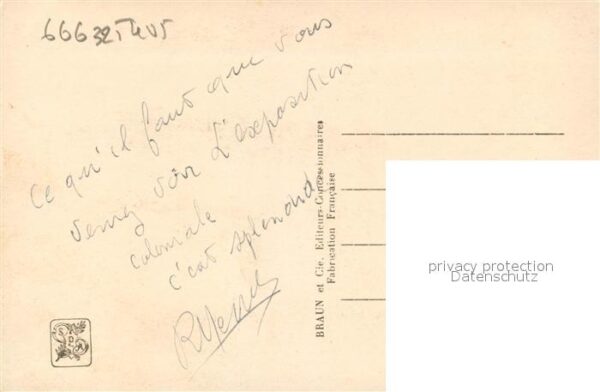 ce qu'il faut que vous
venez voir L'exposition
coloniale
c'est splendide
BRAUN et Cie, Editeurs-Concessionnaires
Fabrication Française
privacy protection
Datenschutz